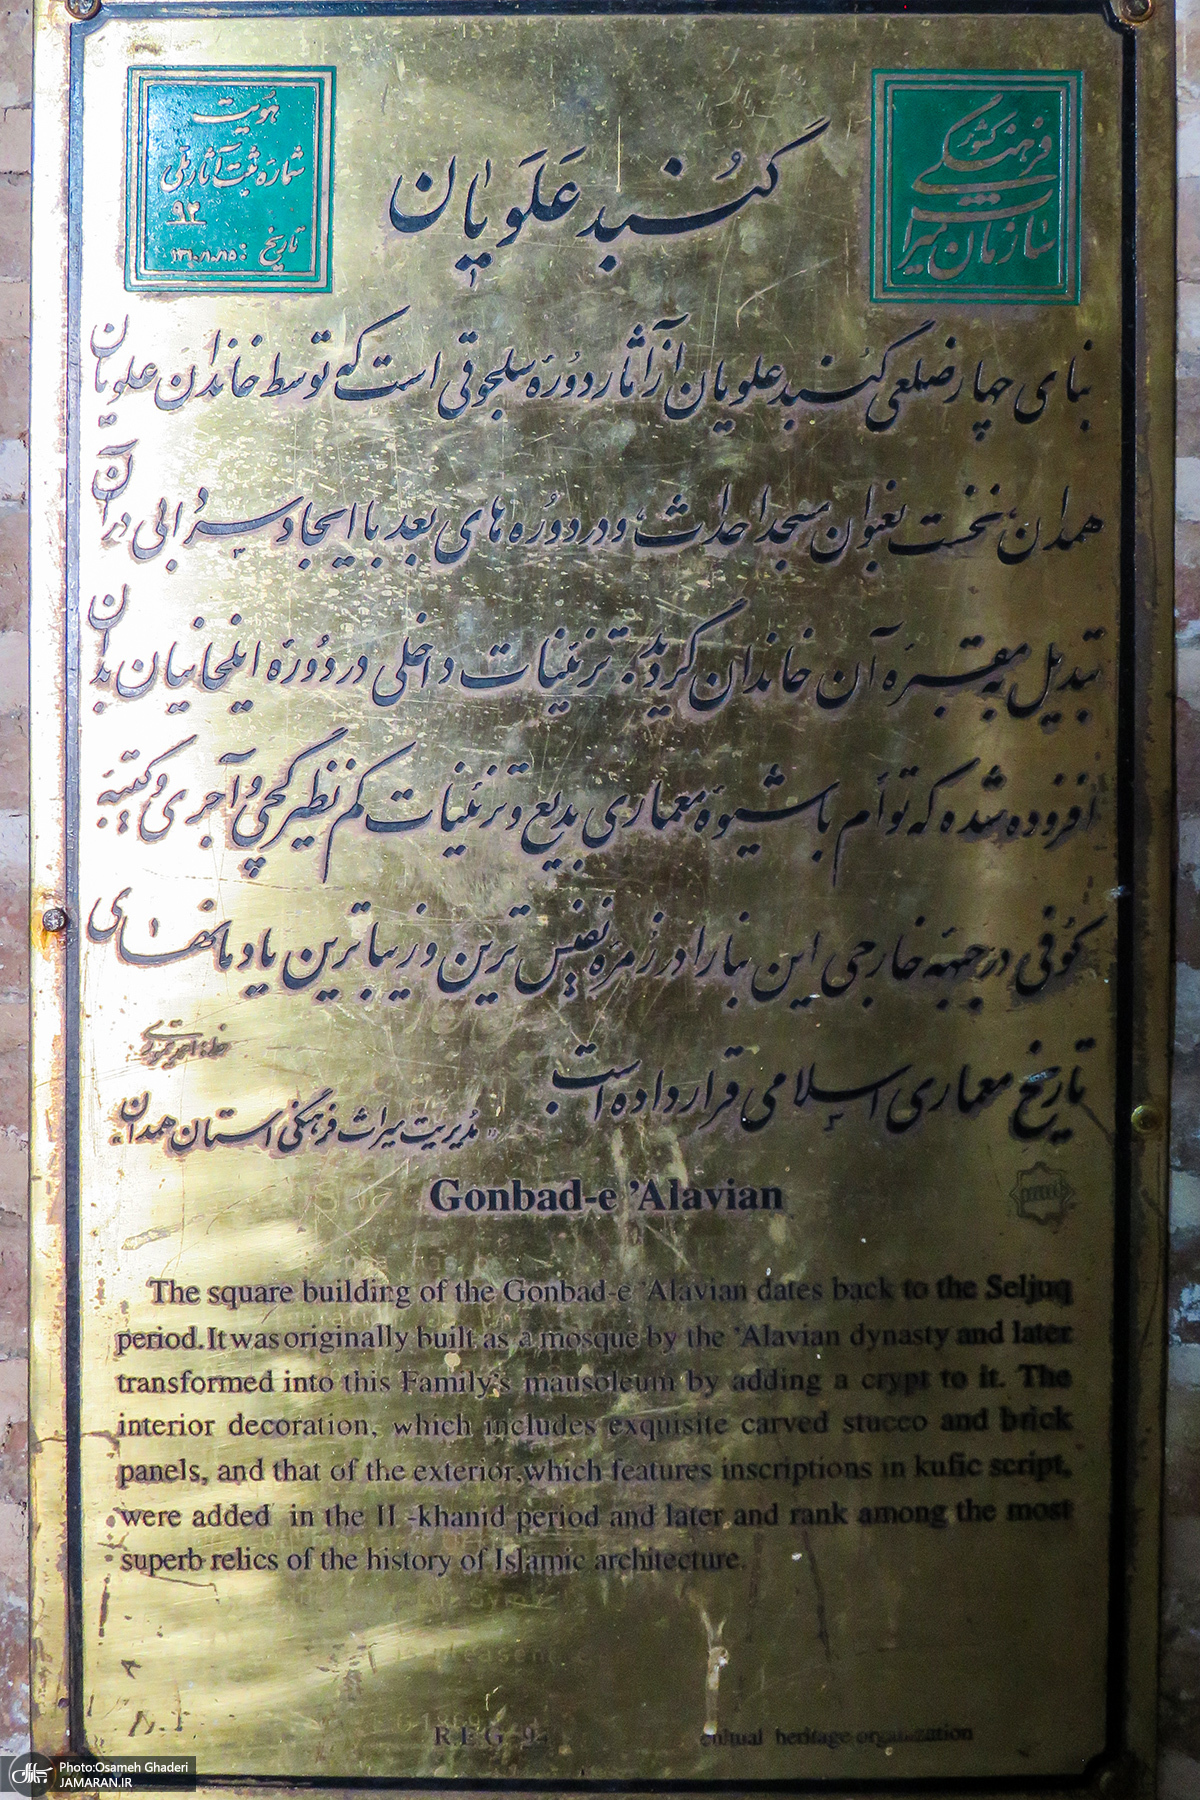 هویت
شماره ثبت آثار ملی
۹۲
تاریخ : ۱۳۱۰/۱۰/۱۵
سازمان میراث
فرهنگی کشور
گنبد علویان
بنای چهار ضلعی گنبد علویان از آثار دوره سلجوقی است که توسط خاندان علویان
همدان، نخست بعنوان مسجد احداث، و در دوره های بعد با ایجاد سردابی در آن
تبدیل به مقبره آن خاندان گردید. تزئینات داخلی در دوره ایلخانیان بدان
افزوده شده که توأم با شیوه معماری بدیع و تزئینات کم نظیر گچی و آجری و کتیبه
کوفی در جبهه خارجی این بنا را در زمره نفیس ترین و زیباترین یادمانهای
تاریخ معماری اسلامی قرار داده است
خط: احمد تیموری
«مدیریت میراث فرهنگی استان همدان»
Gonbad-e 'Alavian
The square building of the Gonbad-e 'Alavian dates back to the Seljuq
period. It was originally built as a mosque by the 'Alavian dynasty and later
transformed into this Family's mausoleum by adding a crypt to it. The
interior decoration, which includes exquisite carved stucco and brick
panels, and that of the exterior, which features inscriptions in kufic script,
were added in the Il -khanid period and later and rank among the most
superb relics of the history of Islamic architecture.
REG 94
cultual heritage organization
Photo:Osameh Ghaderi
JAMARAN.IR